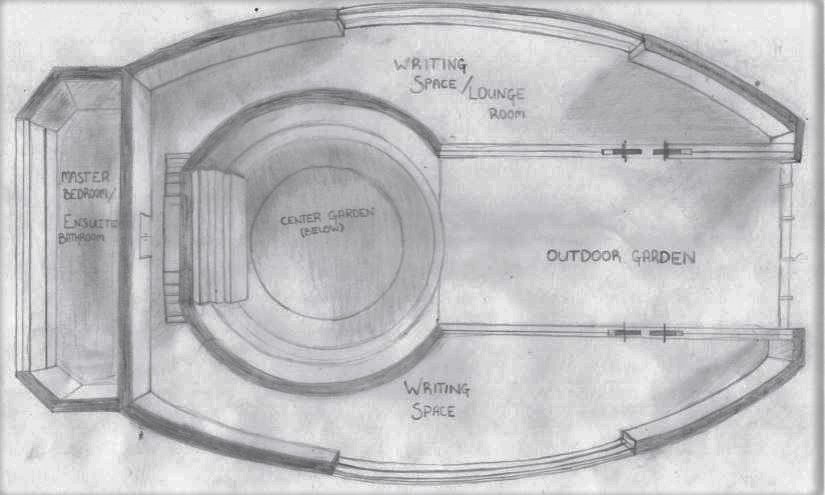 WRITING
SPACE/LOUNGE
ROOM
MASTER
BEDROOM/
ENSUITE
BATHROOM
CENTER GARDEN
(BELOW)
OUTDOOR GARDEN
WRITING
SPACE